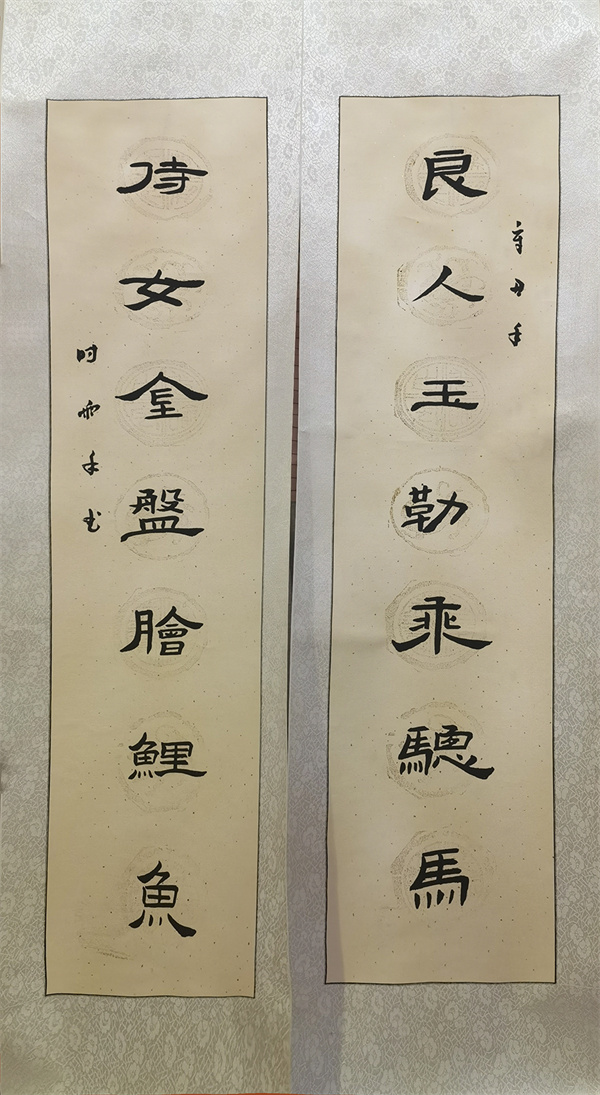 辛丑年
良人玉勒乘驄馬
侍女金盤膾鯉魚
时雨年书